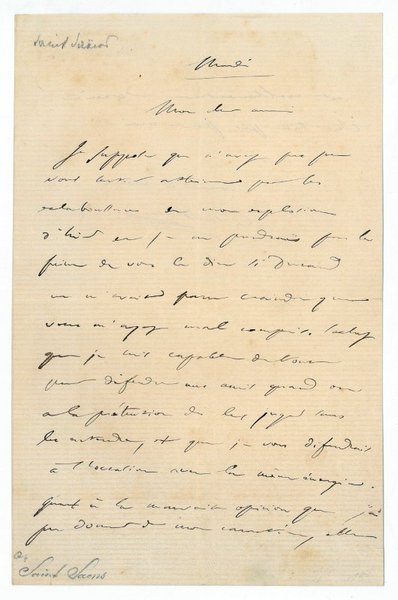 Saint Saëns
Mardi
Mon cher ami
Je suppose que n'avez pas pu
vous être atteint par les
éclaboussures de mon explosion
d'hier et je ne prendrais pas la
peine de vous le dire si Durand
ne m'avait paru craindre que
vous m'ayez mal compris. Sachez
que je suis capable de
pour défendre mes amis quand on
a la prétention de les juger sans
les entendre, et que je vous défendrais
à l'occasion avec la même énergie.
Quant à la mauvaise opinion que j'ai
pu donner de mon caractère, elle
Saint Saens